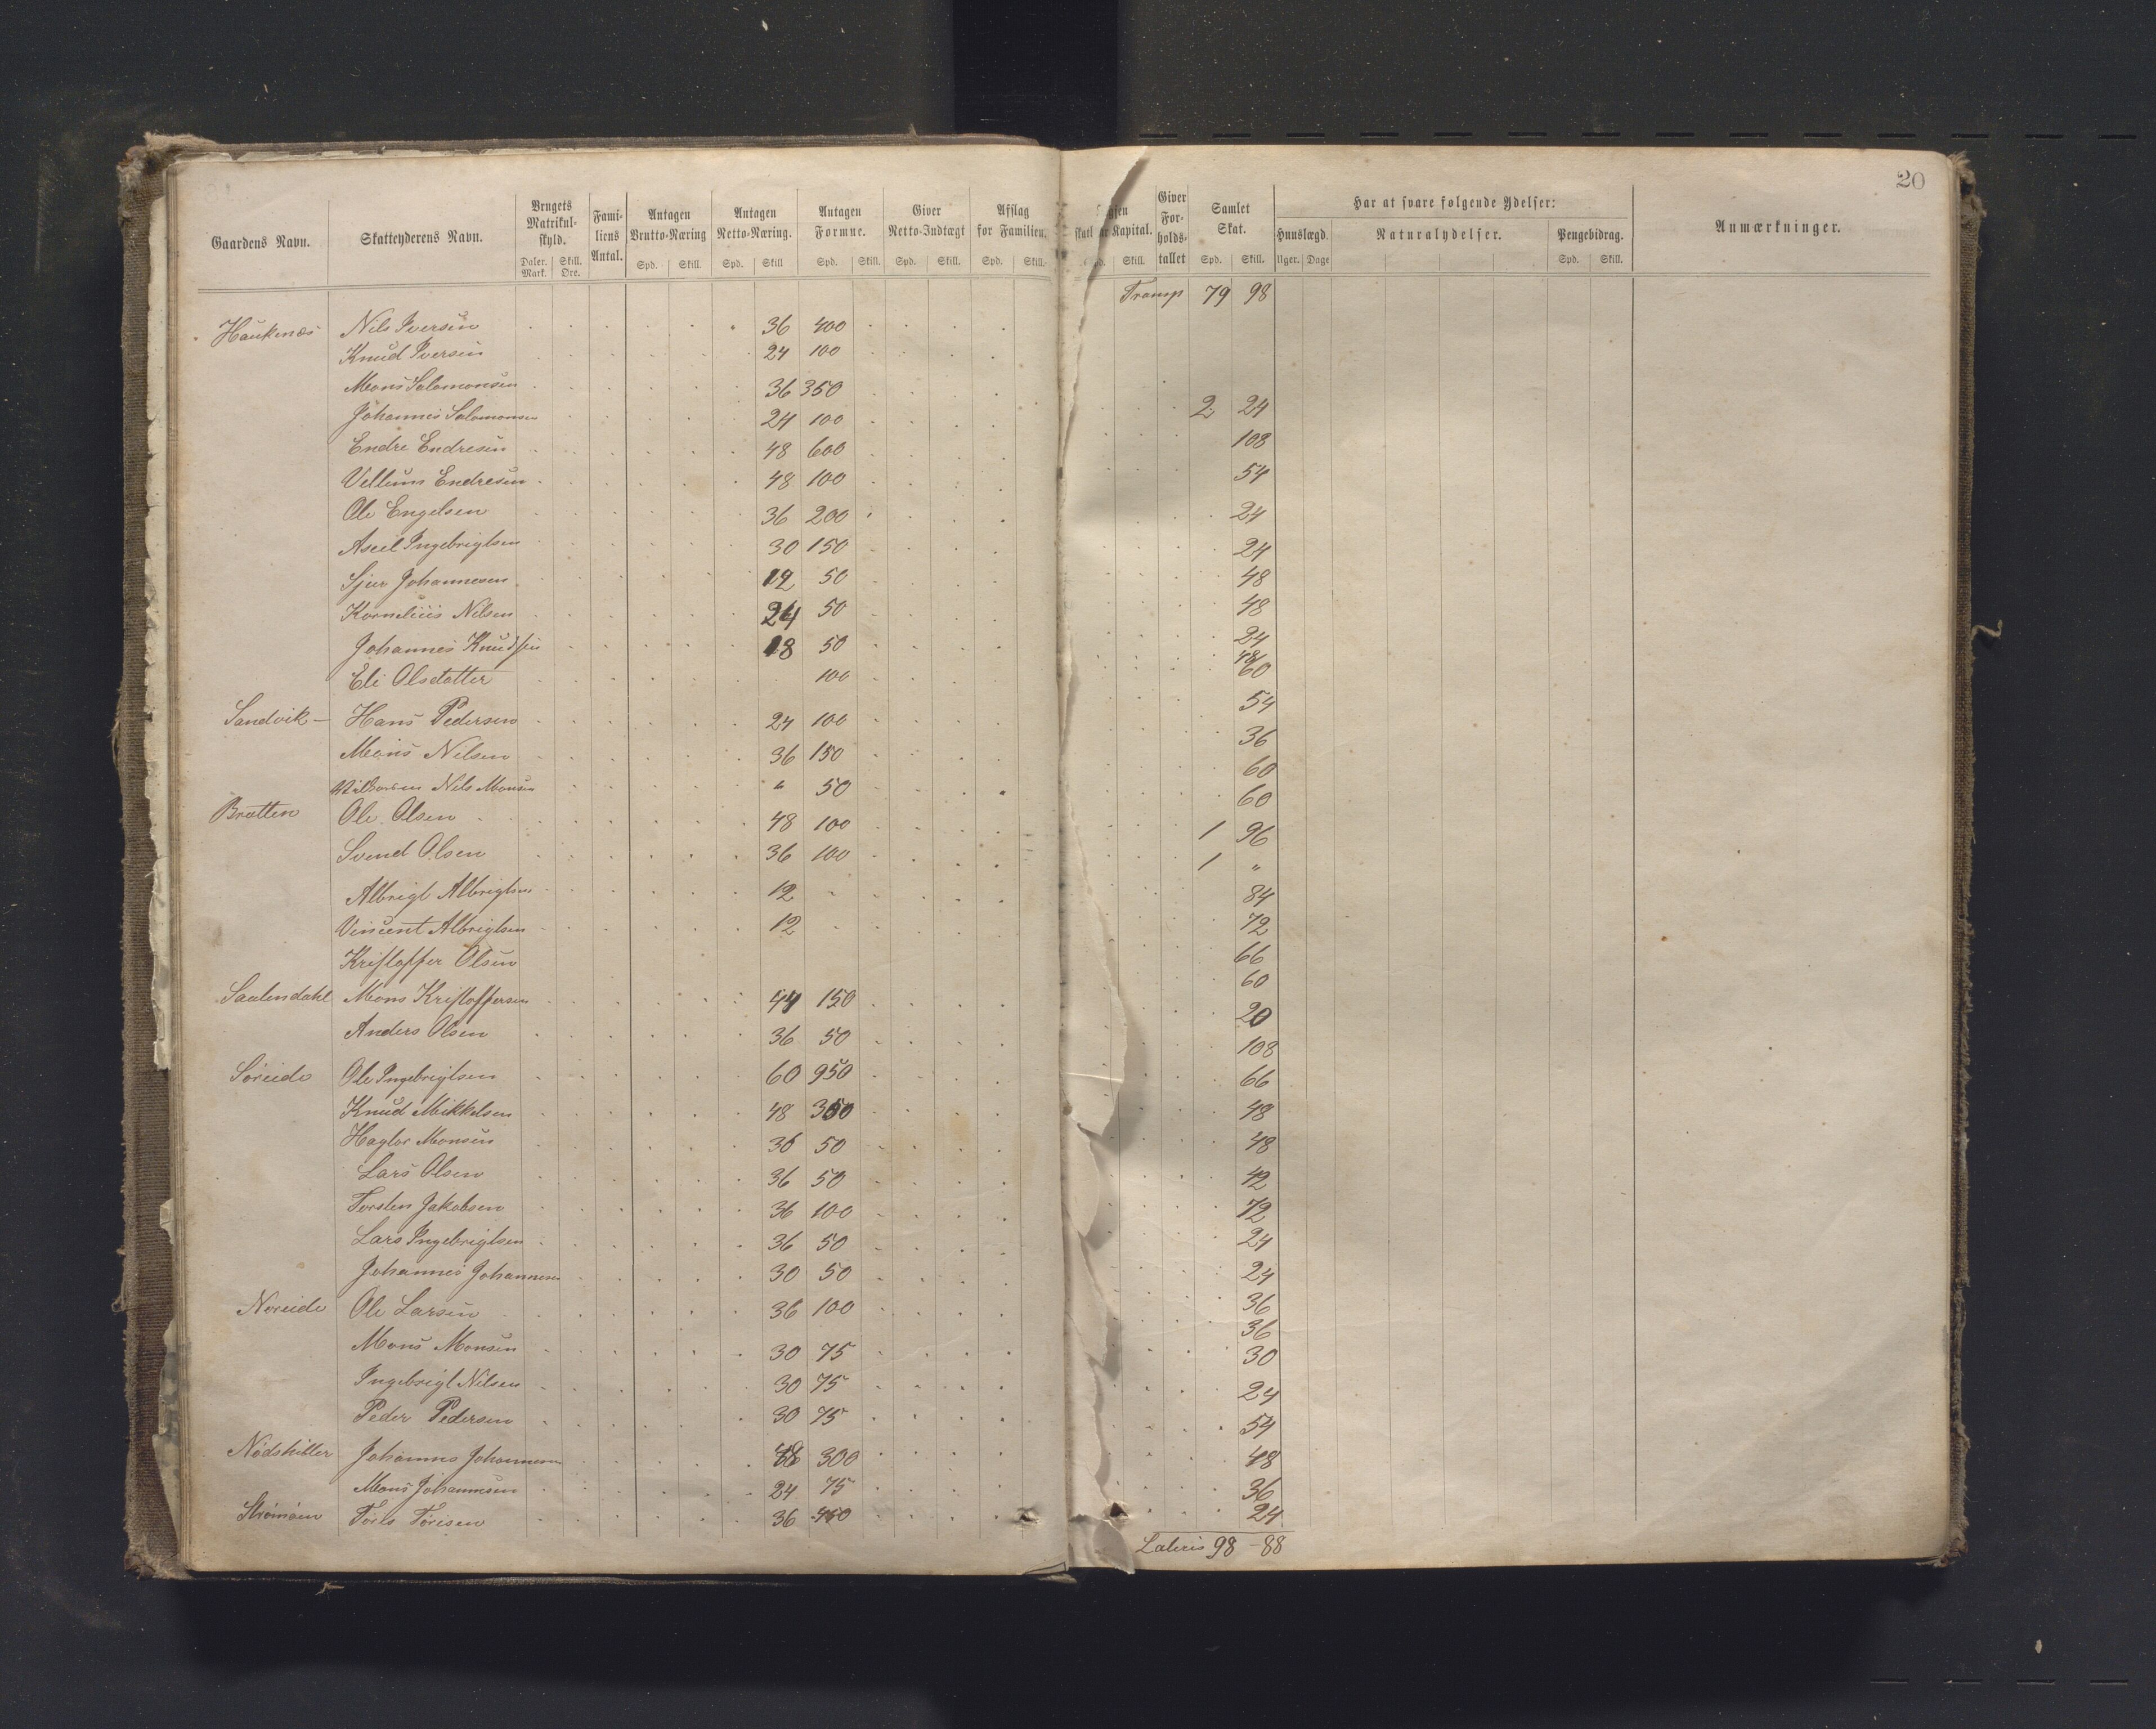 20
Gaardens Navn. Skatteyderens Navn. Brugets Matrikul-skyld. Fami-liens Antal. Antagen Brutto-Næring Antagen Netto-Næring. Antagen Formue. Giver Netto-Indtægt Afslag for Familien. Kapital. Giver For-holds-tallet Samlet Skat. Har at svare følgende Ydelser: Anmærkninger.
Hunslægd. Naturalydelser. Pengebidrag.
Daler. Mark. Skill. Øre. Spd. Skill. Spd. Skill Spd. Skill. Spd. Skill. Spd. Skill. Skill. Spd. Skill. Uger. Dage Spd. Skill.
Transp 79 98
Haukenæs Nils Iversen 36 400
Knud Iversen 24 100
Mons Salomonsen 36 350
Johannes Salomonsen 24 100 2 24
Endre Endresen 48 600 108
Villum Endresen 48 100 54
Ole Engelsen 36 200 24
Aseil Ingebrigtsen 30 150 24
Sjur Johannesen 12 50 48
Kornelius Nilsen 24 50 48
Johannes Knudsen 18 50 24
48
Eli Olsdatter 100 60
Sandvik – Hans Pedersen 24 100 54
Mons Nilsen 36 150 36
Nils Monsen " 50 60
Bratten Ole Olsen 48 100 60
Svend Olsen 36 100 1 96
1 "
Albrigt Albrigtsen 12 84
Vincent Albrigtsen 12 72
Kristoffer Olsen 66
Saalendahl Mons Kristoffersen 44 150 60
Anders Olsen 36 50 20
108
Søreide Ole Ingebrigtsen 60 950 66
Knud Mikkelsen 48 350 48
Haglor Monsen 36 50 48
Lars Olsen 36 50 42
Torsten Jakobsen 36 100 72
Lars Ingebrigtsen 36 50 24
Johannes Johannesen 30 50 24
Noreide Ole Larsen 36 100 36
36
Mons Monsen 30 75 30
Ingebrigt Nilsen 30 75 24
Peder Pedersen 30 75 54
Nødskilter Johannes Johannesen 48 300 48
Mons Johannesen 24 75 36
Strømøen Tørris Tørisen 36 450 24
Lateris 98 – 88